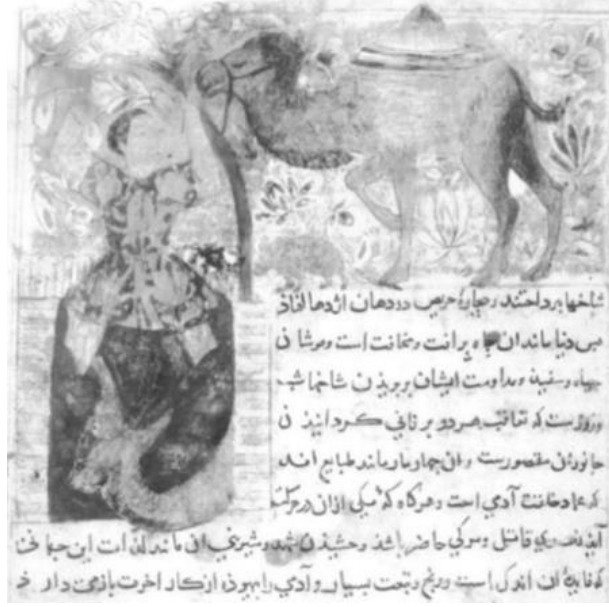 شاخها برداختند و بیچاره حریص در دهان اژدها افتاد
من دنیا ماندان چاه پر آفت و مخافت است و موشان
سیاه و سفید و مداومت ایشان بر بریدن شاخها شب
و روزست که تعاقب هر دو بر فانی کردانیدن
جانوران مقصورست و ان چهار مار مانند طبایع اند
که عماد خلقت آدمی است و هرکاه که یکی ازان در حرکت
آید زهری قاتل و مرکی حاضر باشد و چشیدن شهد و شیرینی ان مانند لذات این جهانی
که فایده ان اندک است و رنج و تبعت بسیار و آدمی را بیهوده از کار اخرت بازمی دارد